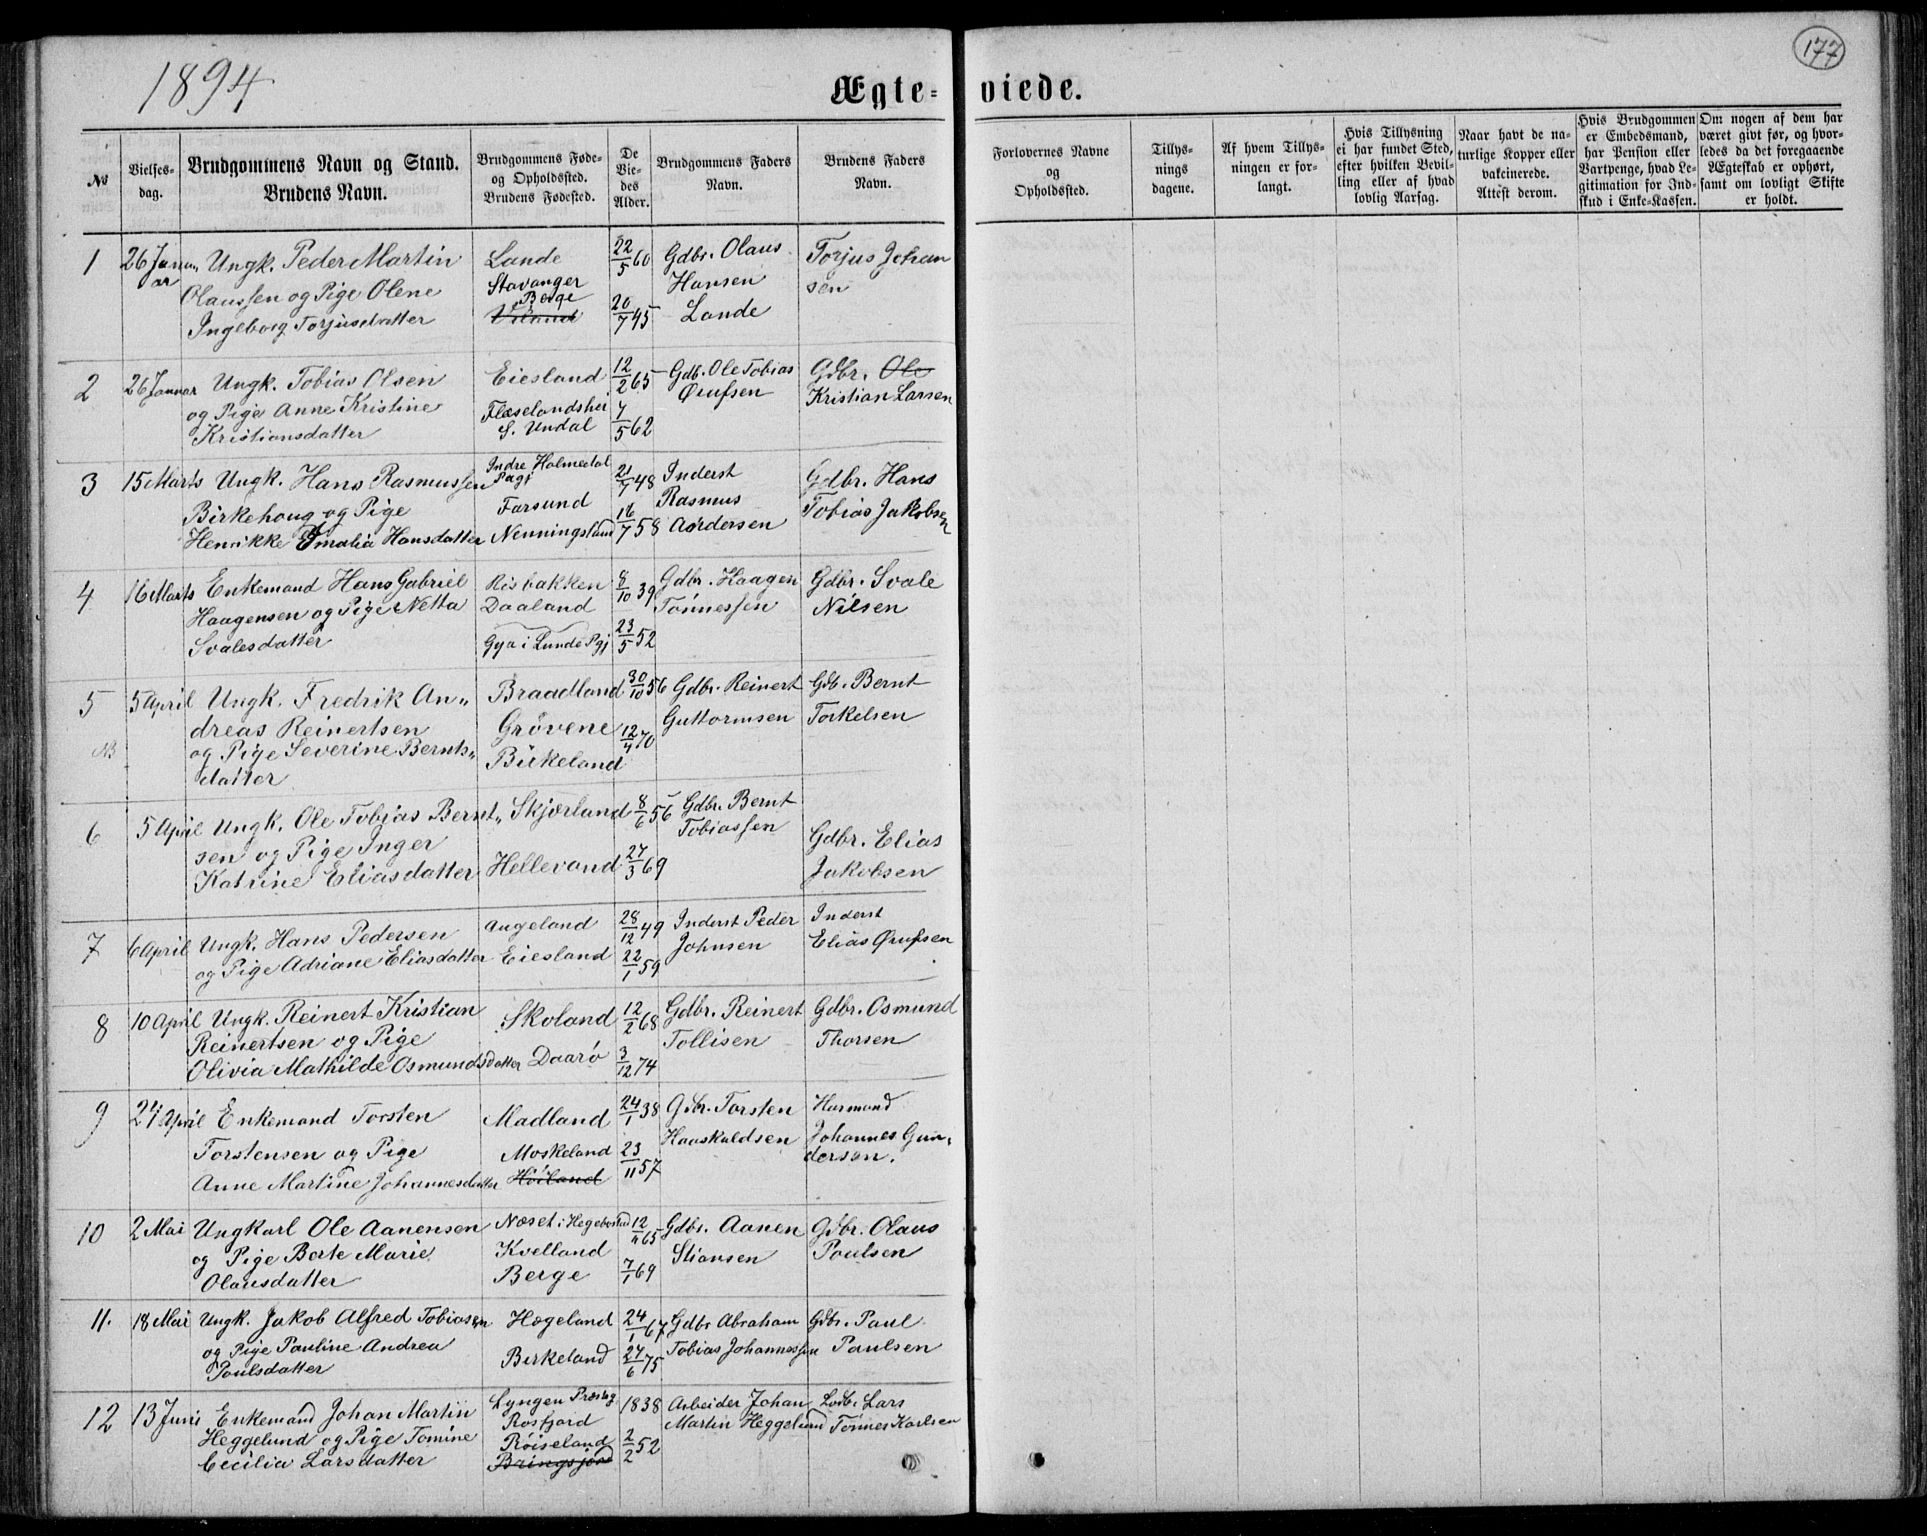 177
1894
Ægte-viede.
No
Vielses-
dag.
Brudgommens Navn og Stand.
Brudens Navn.
Brudgommens Føde-
og Opholdssted.
Brudens Fødested.
De
Vie-
des
Alder.
Brudgommens Faders
Navn.
Brudens Faders
Navn.
Forlovernes Navne
og
Opholdssted.
Tillys-
nings
dagene.
Af hvem Tillys-
ningen er for-
langt.
Hvis Tillysning
ei har fundet Sted,
efter hvilken Bevil-
ling eller af hvad
lovlig Aarsag.
Naar havt de na-
turlige Kopper eller
vakcinerede.
Attest derom.
Hvis Brudgommen
er Embedsmand,
har Pension eller
Vartpenge, hvad Le-
gitimation for Ind-
skud i Enke-Kassen.
Om nogen af dem har
været givt før, og hvor-
ledes da det foregaaende
Ægteskab er ophørt,
samt om lovligt Skifte
er holdt.
1 26 Janu-
ar
Ungk. Peder Martin
Olaussen og Pige Olene
Ingeborg Torjusdatter
Lande
Stavanger
Berge
22/5 60
20/7 45
Gdbr. Olaus
Hansen
Lande
Torjus Johan
sen
2 26 Januar
Ungk. Tobias Olsen
og Pige Anne Kristine
Kristiansdatter
Eiesland
Flæselandshei
S. Undal
12/2 65
7/5 62
Gdb. Ole Tobias
Ørufsen
Gdbr. Ole
Kristian Larsen
3 15 Marts
Ungk. Hans Rasmussen
Birkehoug og Pige
Henrikke Amalia Hansdatter
Indre Holmedal
Pgj
Farsund
Nenningsland
21/7 48
16/7 58
Inderst
Rasmus
Aardersen
Gdbr. Hans
Tobias Jakobsen
4 16 Marts
Enkemand Hans Gabriel
Haagensen og Pige Netta
Svalesdatter
Risbakken
Daaland
Gya i Lunde Pgj
8/10 39
23/5 52
Gdbr. Haagen
Tønnessen
Gdbr. Svale
Nilsen
5 5 April
NB
Ungk. Fredrik An„
dreas Reinertsen
og Pige Severine Bernts„
datter
Braadland
Grövene
Birkeland
30/10 56
12/4 70
Gdbr. Reinert
Guttormsen
Gdb. Bernt
Torkelsen
6 5 April
Ungk. Ole Tobias Bernt„
sen og Pige Inger
Katrine Eliasdatter
Skjærland
Hellevand
8/6 56
27/3 69
Gdbr. Bernt
Tobiassen
Gdbr. Elias
Jakobsen
7 6 April
Ungk. Hans Pedersen
og Pige Adriane Eliasdatter
Augeland
Eiesland
28/12 49
22/1 59
Inderst Peder
Johnsen
Inderst
Elias Ørufsen
8 10 April
Ungk. Reinert Kristian
Reinertsen og Pige
Olivia Mathilde Osmundsdatter
Skoland
Daarö
12/2 68
3/12 74
Gdbr. Reinert
Tollisen
Gdbr. Osmund
Thorsen
9 27 April
Enkemand Torsten
Torstensen og Pige
Anne Martine Johannesdatter
Madland
Moskeland
Höiland
24/1 38
23/11 57
Gdbr. Torsten
Haaskuldsen
Husmand
Johannes Gun„
dersen.
10 2 Mai
Ungkarl Ole Aanensen
og Pige Berte Marie
Olausdatter
Næset i Hegebostad
Kvelland
Berge
12/4 65
7/1 69
Gdbr. Aanen
Stiansen
Gdbr. Olaus
Poulsen
11. 18 Mai
Ungk. Jakob Alfred Tobiasen
og Pige Pauline Andrea
Poulsdatter
Hægeland
Birkeland
24/1 67
24/6 75
Gdbr Abraham
Tobias Johannessen
Gdbr. Paul
Paulsen
12 13 Juni
Enkemand Johan Martin
Heggelund og Pige Tomine
Cecilia Larsdatter
Lyngen Præstg
Rosfjord
Röiseland
Bringsjord
1838
2/2 52
Arbeider Johan
Martin Heggelund
Lodb. Lars
Tönnes Karlsen